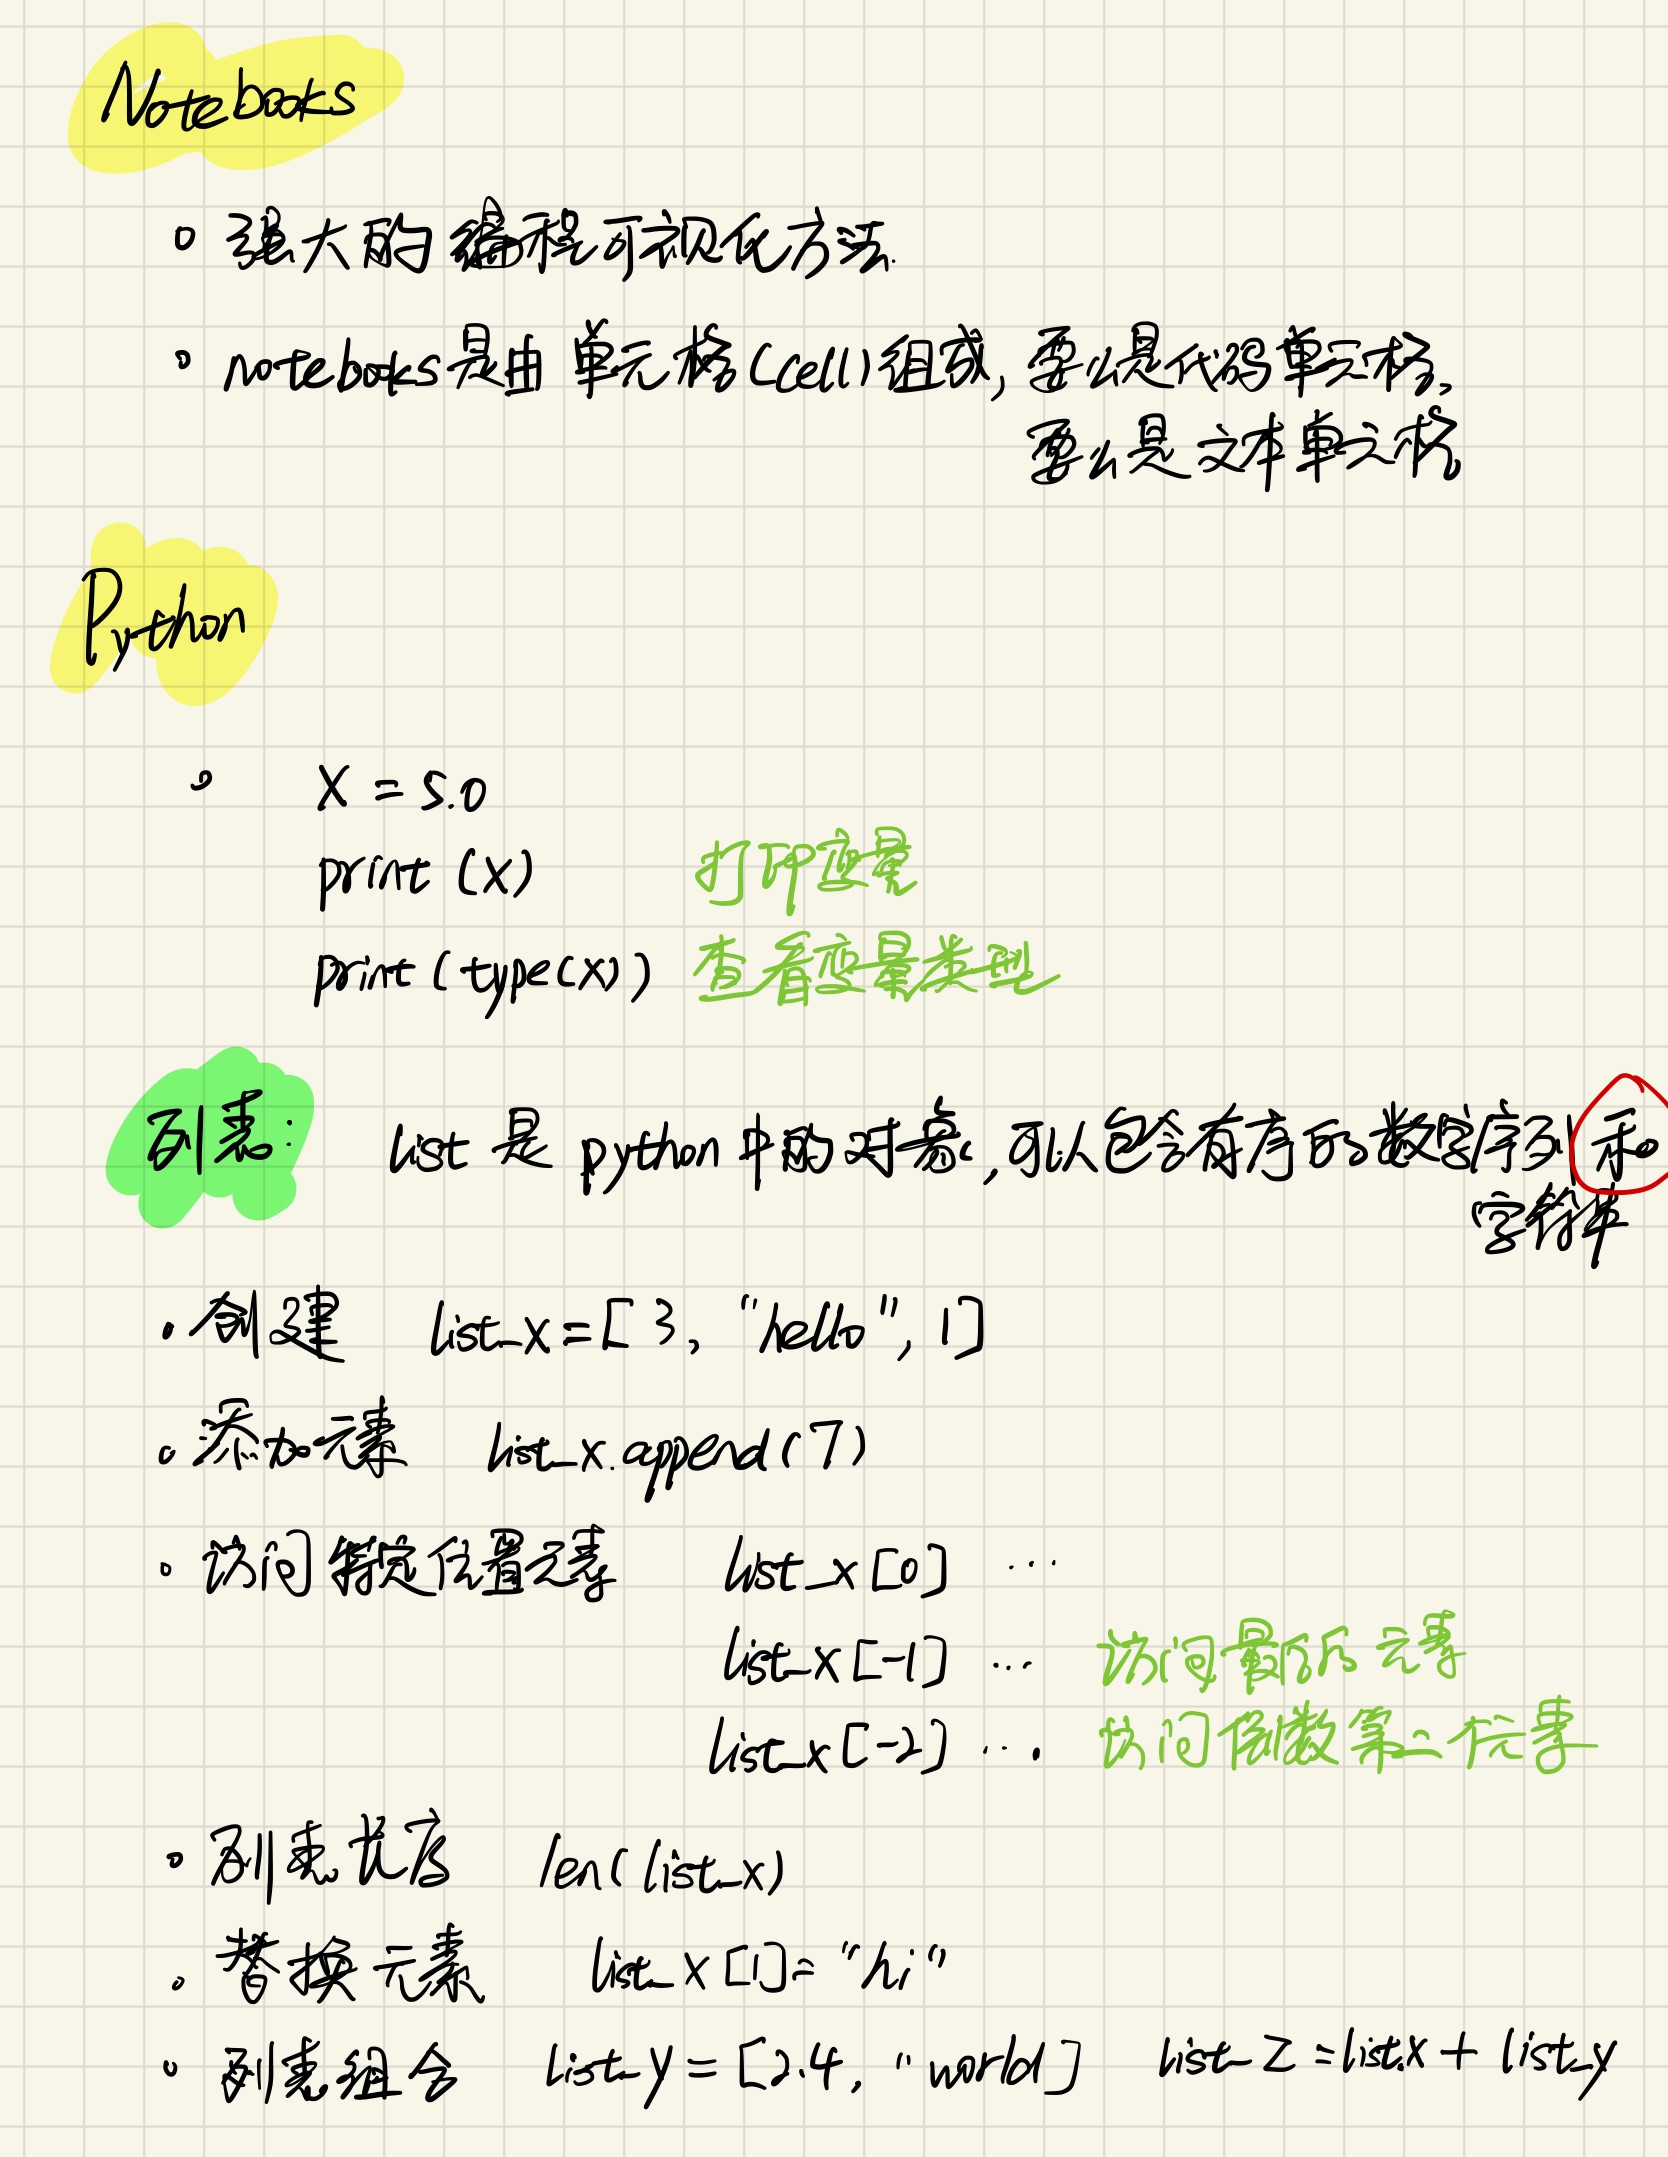 Notebooks
强大的编程可视化方法.
notebooks是由单元格(cell)组成, 要么是代码单元格,
要么是文本单元格
Python
X = 5.0
print (x) 打印变量
print (type(x)) 查看变量类型
列表: list 是 python 中的对象, 可以包含有序的数字序列 和
字符串
创建 list_x = [3, "hello", 1]
添加元素 list_x.append(7)
访问特定位置元素 list_x [0] ...
list_x [-1] ... 访问最后的元素
list_x [-2] ... 访问倒数第二个元素
列表长度 len( list_x)
替换元素 list_x [1] = "hi"
列表组合 list_y = [2.4, "world] list_z = list.x + list_y